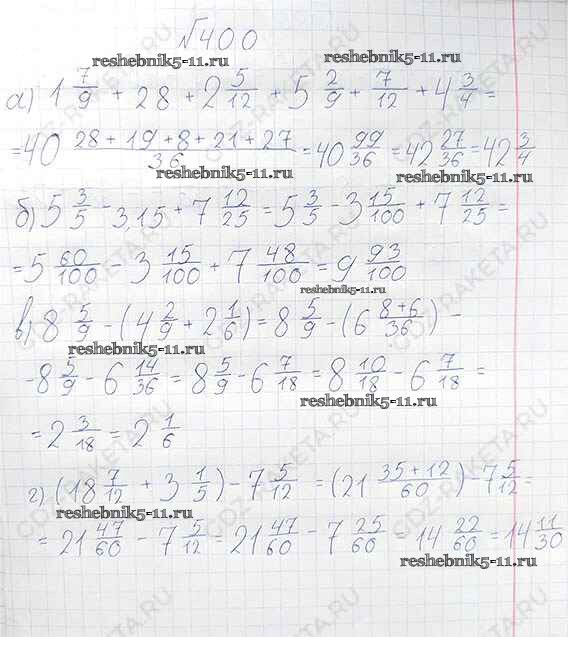 №400
reshebnik5-11.ru reshebnik5-11.ru
а) 1 7/9 + 28 + 2 5/12 + 5 2/9 + 7/12 + 4 3/4 =
= 40 (28 + 19 + 8 + 21 + 27)/36 = 40 99/36 = 42 27/36 = 42 3/4
reshebnik5-11.ru reshebnik5-11.ru
б) 5 3/5 - 3,15 + 7 12/25 = 5 3/5 - 3 15/100 + 7 12/25 =
= 5 60/100 - 3 15/100 + 7 48/100 = 9 93/100
reshebnik5-11.ru
в) 8 5/9 - (4 2/9 + 2 1/6) = 8 5/9 - (6 (8+6)/36) -
reshebnik5-11.ru
- 8 5/9 - 6 14/36 = 8 5/9 - 6 7/18 = 8 10/18 - 6 7/18 =
reshebnik5-11.ru
= 2 3/18 = 2 1/6
г) (18 7/12 + 3 1/5) - 7 5/12 = (21 (35 + 12)/60) - 7 5/12 =
reshebnik5-11.ru
= 21 47/60 - 7 5/12 = 21 47/60 - 7 25/60 = 14 22/60 = 14 11/30
reshebnik5-11.ru
GDZ-RAKETA.RU